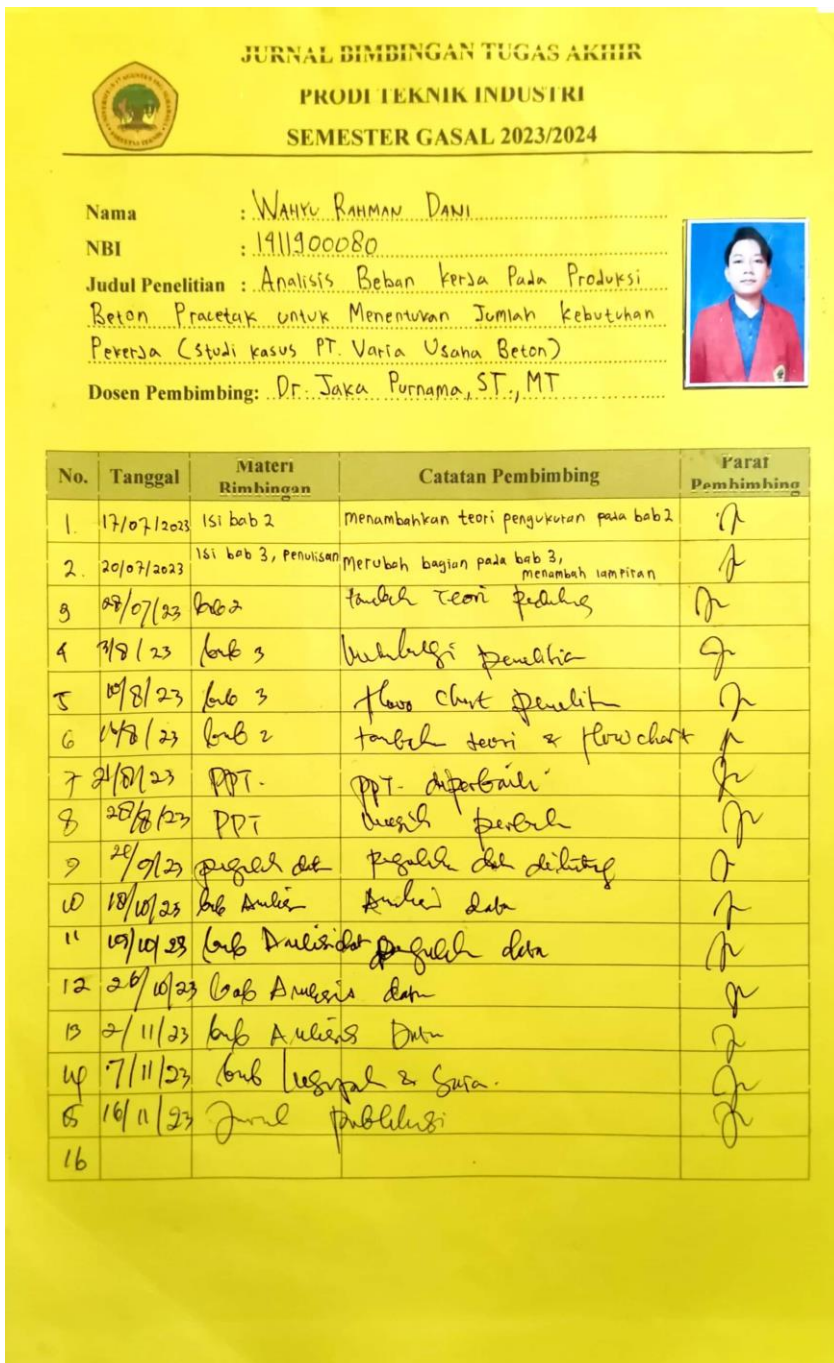 JURNAL BIMBINGAN TUGAS AKHIR
PRODI TEKNIK INDUSTRI
SEMESTER GASAL 2023/2024
Nama : WAHYU RAHMAN DANI
NBI : 1911900080
Judul Penelitian : Analisis Beban Kerja Pada Produksi
Beton Pracetak untuk Menentukan Jumlah Kebutuhan
Pekerja (Studi kasus PT. Varia Usaha Beton)
Dosen Pembimbing: Dr. Jaka Purnama, ST., MT
No. Tanggal Materi Bimbingan Catatan Pembimbing Paraf Pembimbing
1. 17/07/2023 Isi bab 2 menambahkan teori pengukuran pada bab 2
2. 20/07/2023 Isi bab 3, penulisan Merubah bagian pada bab 3, menambah lampiran
3 28/07/23 bab 2 tambah teori
4 3/8/23 bab 3 penelitian
5 10/8/23 bab 3 flow chart penelitian
6 14/8/23 bab 2 tambah teori & flowchart
7 21/8/23 PPT. PPT. diperbaiki
8 28/8/23 PPT
9 /9/23 data data
10 18/10/23 bab Analisis Analisis data
11 19/10/23 bab data
12 26/10/23 bab Analisis data
13 2/11/23 bab Analisis Data
14 7/11/23 bab & Saran.
15 16/11/23 Jurnal publikasi
16